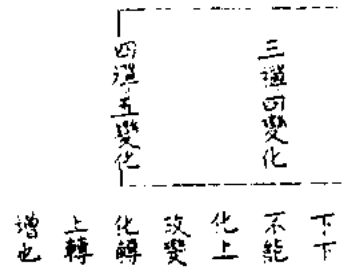 三禪四變化
四禪五變化
下下
不能
化上
故變
化轉
上轉
增也